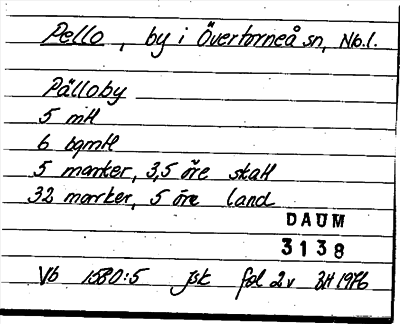 Pello, by i Övertorneå sn, Nb.l.
Pälloby
5 mtl
6 bqmtl
5 marker, 3,5 öre skatt
32 marker, 5 öre land
DAUM
3138
Vb 1580:5 Jsk fol 2v 1976